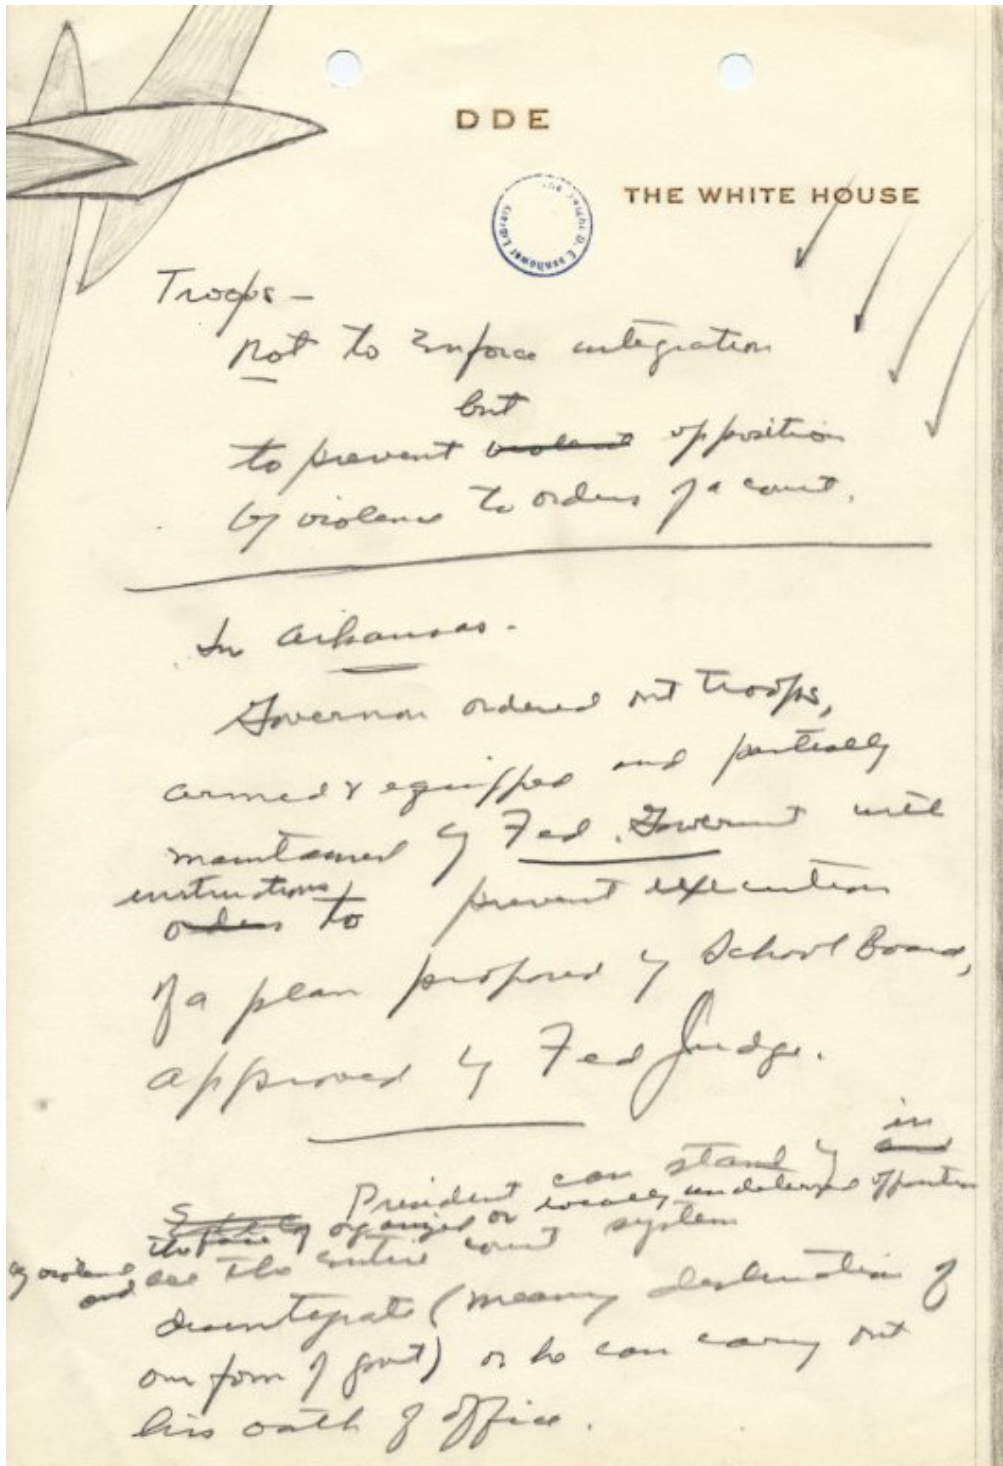 DDE
THE WHITE HOUSE
Troops –
not to Enforce integration
but
to prevent violent opposition
by violence to orders of a court.
In Arkansas.
Governor ordered out troops,
armed & equipped and partially
maintained by Fed. Government with
instructions
orders to prevent execution
of a plan proposed by School Board,
approved by Fed Judge.
in
President can stand by and
the face of organized or locally undeterred opposition
by violence, and see the entire court system
disintegrate (meaning destruction of
our form of govt) or he can carry out
his oath of office.